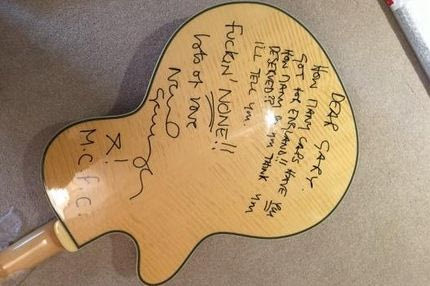 DEAR GARY.
HOW MANY CAPS HAVE YOU
GOT FOR ENGLAND!!
HOW MANY DO YOU THINK YOU
DESERVED?!
I'LL TELL YOU
FUCKIN' NONE!!
lots of love
Noel
X!
M.C.F.C.